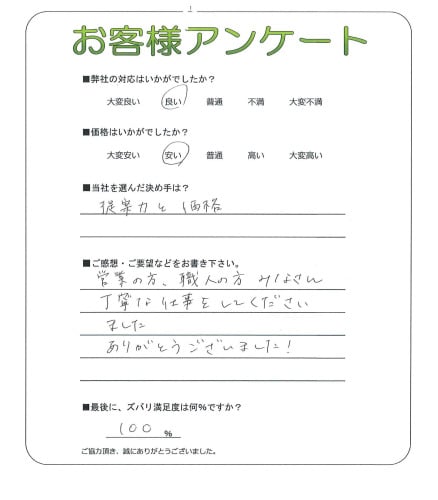 お客様アンケート
■弊社の対応はいかがでしたか？
大変良い 良い 普通 不満 大変不満
■価格はいかがでしたか？
大変安い 安い 普通 高い 大変高い
■当社を選んだ決め手は？
提案力と価格
■ご感想・ご要望などをお書き下さい。
営業の方、職人の方 みなさん
丁寧な仕事をしてください
ました
ありがとうございました！
■最後に、ズバリ満足度は何％ですか？
100 %
ご協力頂き、誠にありがとうございました。